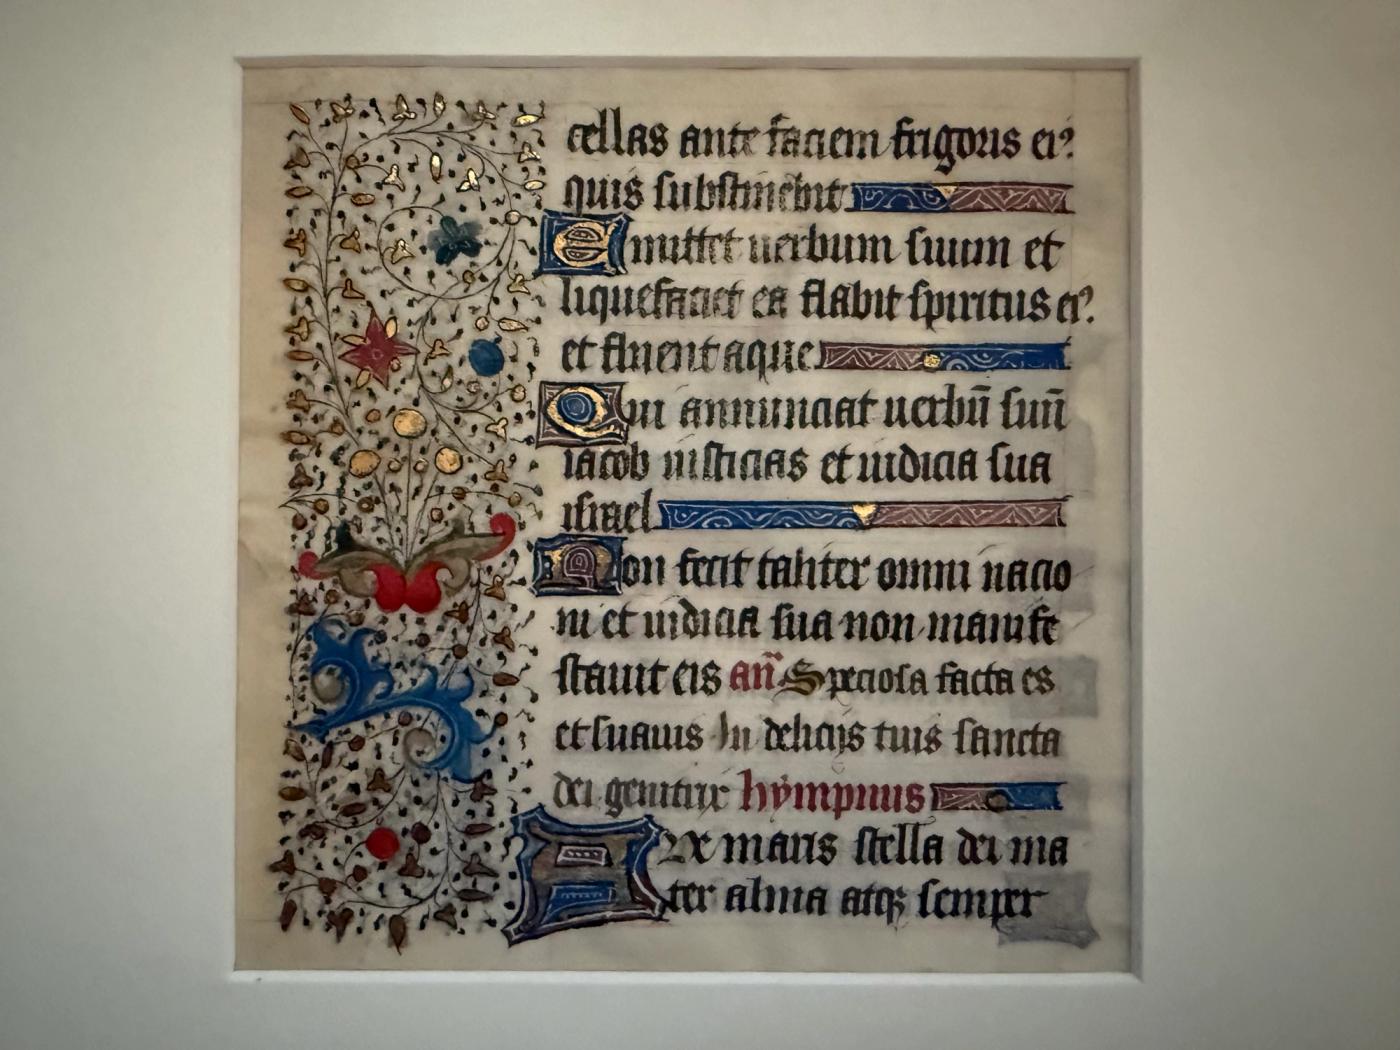 cellas ante faciem frigoris ei⁹
quis substinebit
Emittet uerbum suum et
liquefaciet ea flabit spiritus ei⁹
et fluent aque
Qui annunciat uerbū suū
iacob iusticias et iudicia sua
israel
Non fecit taliter omni nacio
ni et iudicia sua non manife
stauit eis an̄ Speciosa facta es
et suauis In delicijs tuis sancta
dei genitrix hympnus
Aue maris stella dei ma
ter alma atqꝫ semper